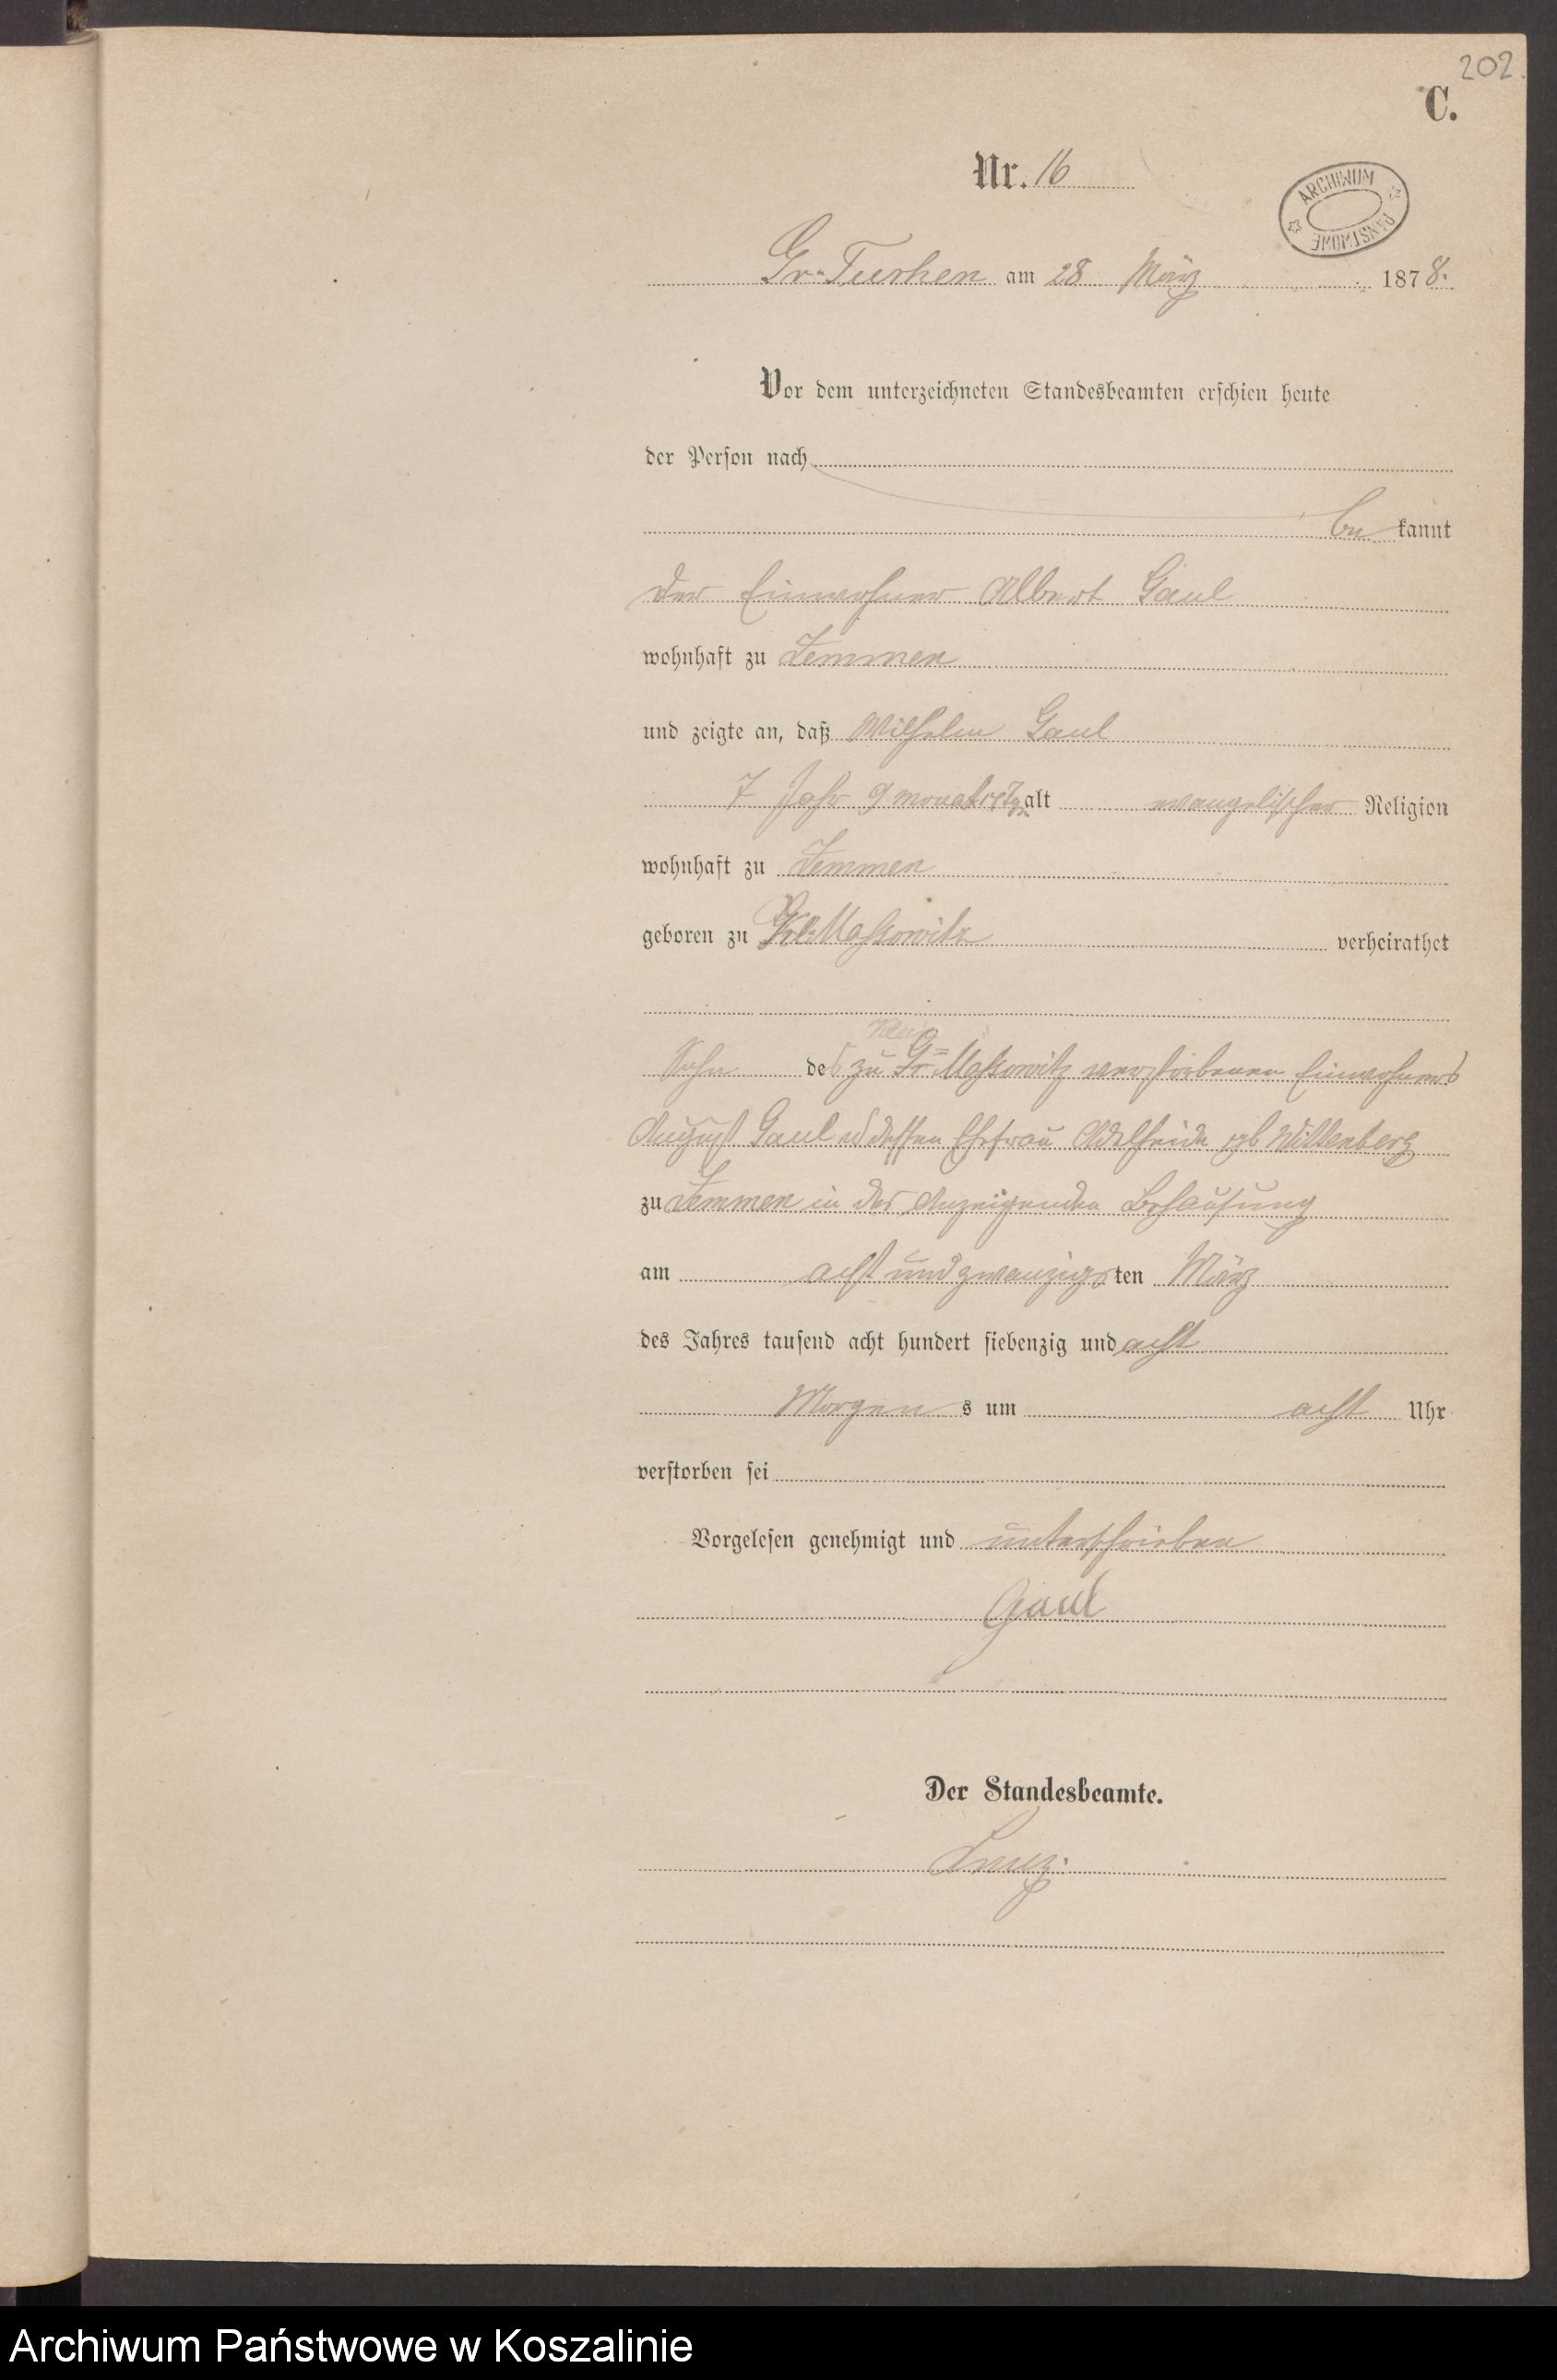 202.
C.
Nr. 16
ARCHIWUM PAŃSTWOWE
Gr. Tuchen am 28 März 1878.
Vor dem unterzeichneten Standesbeamten erschien heute
der Person nach
be kannt
der Einwohner Albert Gaul
wohnhaft zu Zemmen
und zeigte an, daß Wilhelm Gaul
7 Jahr 9 monat alt evangelischer Religion
wohnhaft zu Zemmen
geboren zu Kl. Massowitz verheirathet
Klein
Sohn des zu Gr. Massowitz verstorbenen Einwohners
August Gaul u dessen Ehefrau Adelheide geb Wittenberg
zu Zemmen in des Anzeigenden Behausung
am acht und zwanzigsten März
des Jahres tausend acht hundert siebenzig und acht
Morgens um acht Uhr
verstorben sei
Vorgelesen genehmigt und unterschrieben
Gaul
Der Standesbeamte.
Archiwum Państwowe w Koszalinie